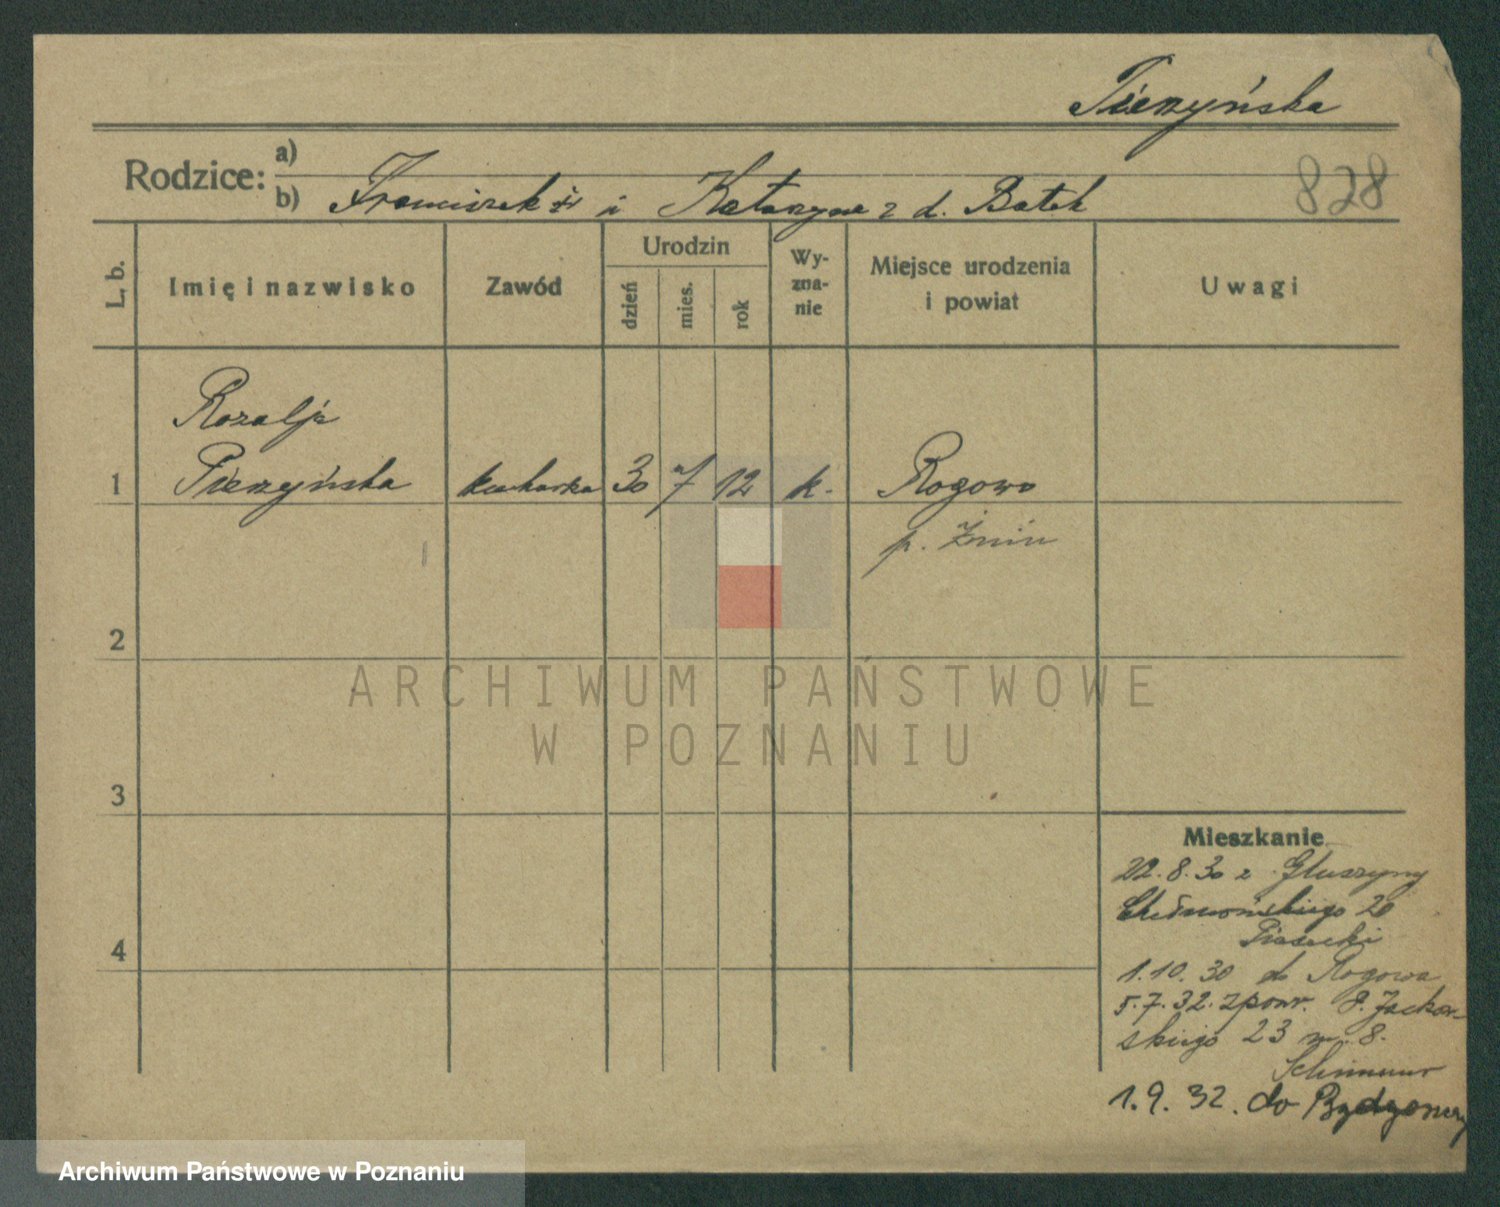 Pierzyńska
Rodzice: a)
b) Franciszek i Katarzyna z d. Batek
828
L. b.
Imię i nazwisko
Zawód
Urodzin
dzień
mies.
rok
Wy-
zna-
nie
Miejsce urodzenia
i powiat
Uwagi
Rozalja
1 Pierzyńska kucharka 30 7 12 k. Rogowo
p. Żnin
2
3
4
Mieszkanie
22.8.30 z Głuszyny
20
Piasecki
1.10.30 do Rogowa
5.7.32. zpowr. P. Jackow-
skiego 23 m. 8.
1.9.32. do Bydgoszczy
ARCHIWUM PAŃSTWOWE
W POZNANIU
Archiwum Państwowe w Poznaniu